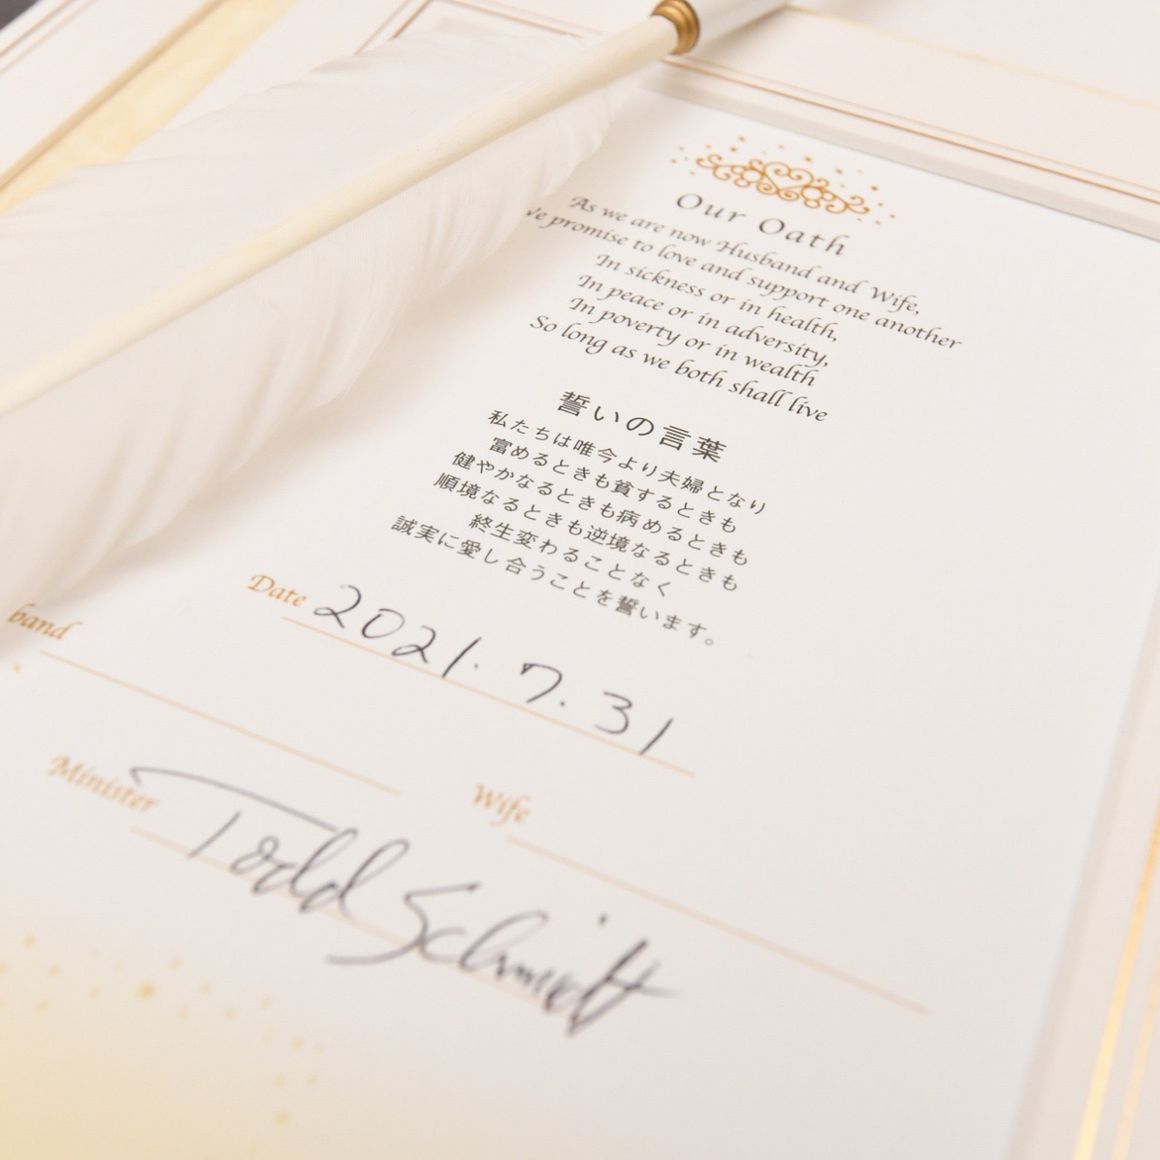 Our Oath
As we are now Husband and Wife,
We promise to love and support one another
In sickness or in health,
In peace or in adversity,
In poverty or in wealth
So long as we both shall live
誓いの言葉
私たちは唯今より夫婦となり
富めるときも貧するときも
健やかなるときも病めるときも
順境なるときも逆境なるときも
終生変わることなく
誠実に愛し合うことを誓います。
Date 2021.7.31
band
Wife
Minister Todd Schmidt